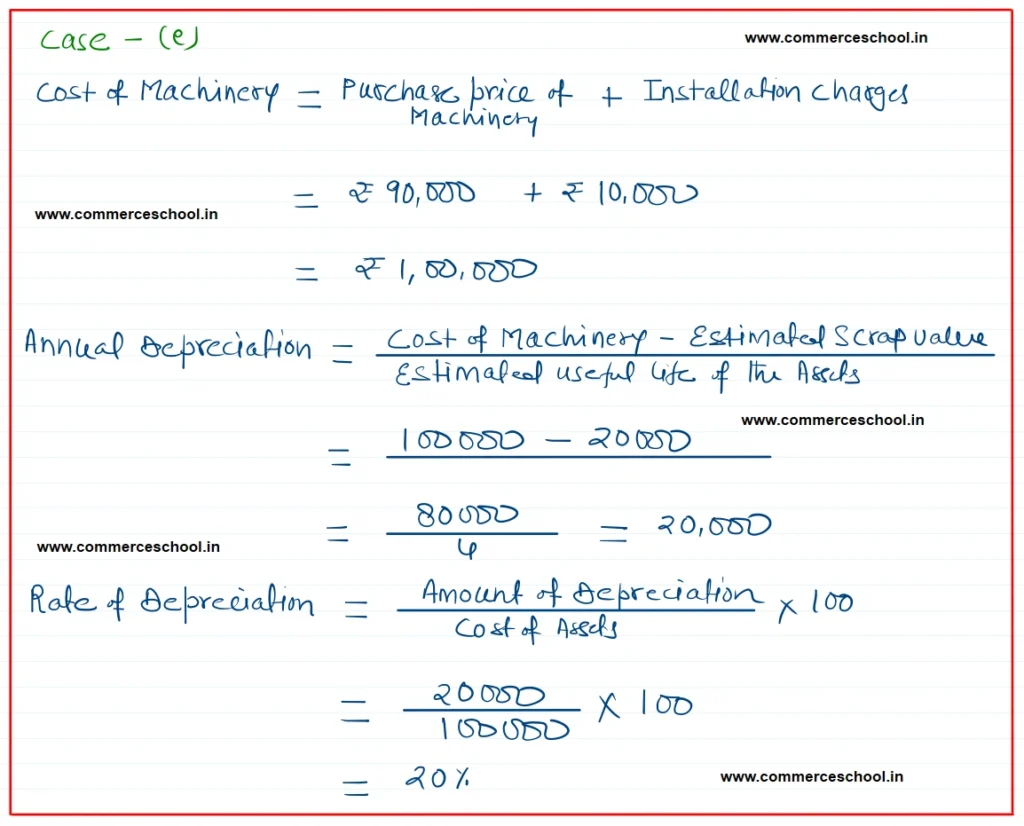 Case - (e)
www.commerceschool.in
Cost of Machinery = Purchase price of Machinery + Installation Charges
= ₹ 90,000 + ₹ 10,000
www.commerceschool.in
= ₹ 1,00,000
Annual Depreciation = Cost of Machinery - Estimated Scrap value
Estimated useful life of the Assets
www.commerceschool.in
= 100000 - 20000
= 80000 = 20,000
4
www.commerceschool.in
Rate of Depreciation = Amount of Depreciation × 100
Cost of Assets
= 20000 × 100
100000
= 20%
www.commerceschool.in